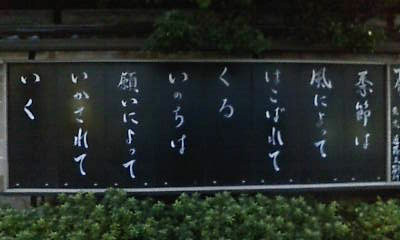 季節は
風によって
はこばれて
くる
いのちは
願いによって
いかされて
いく